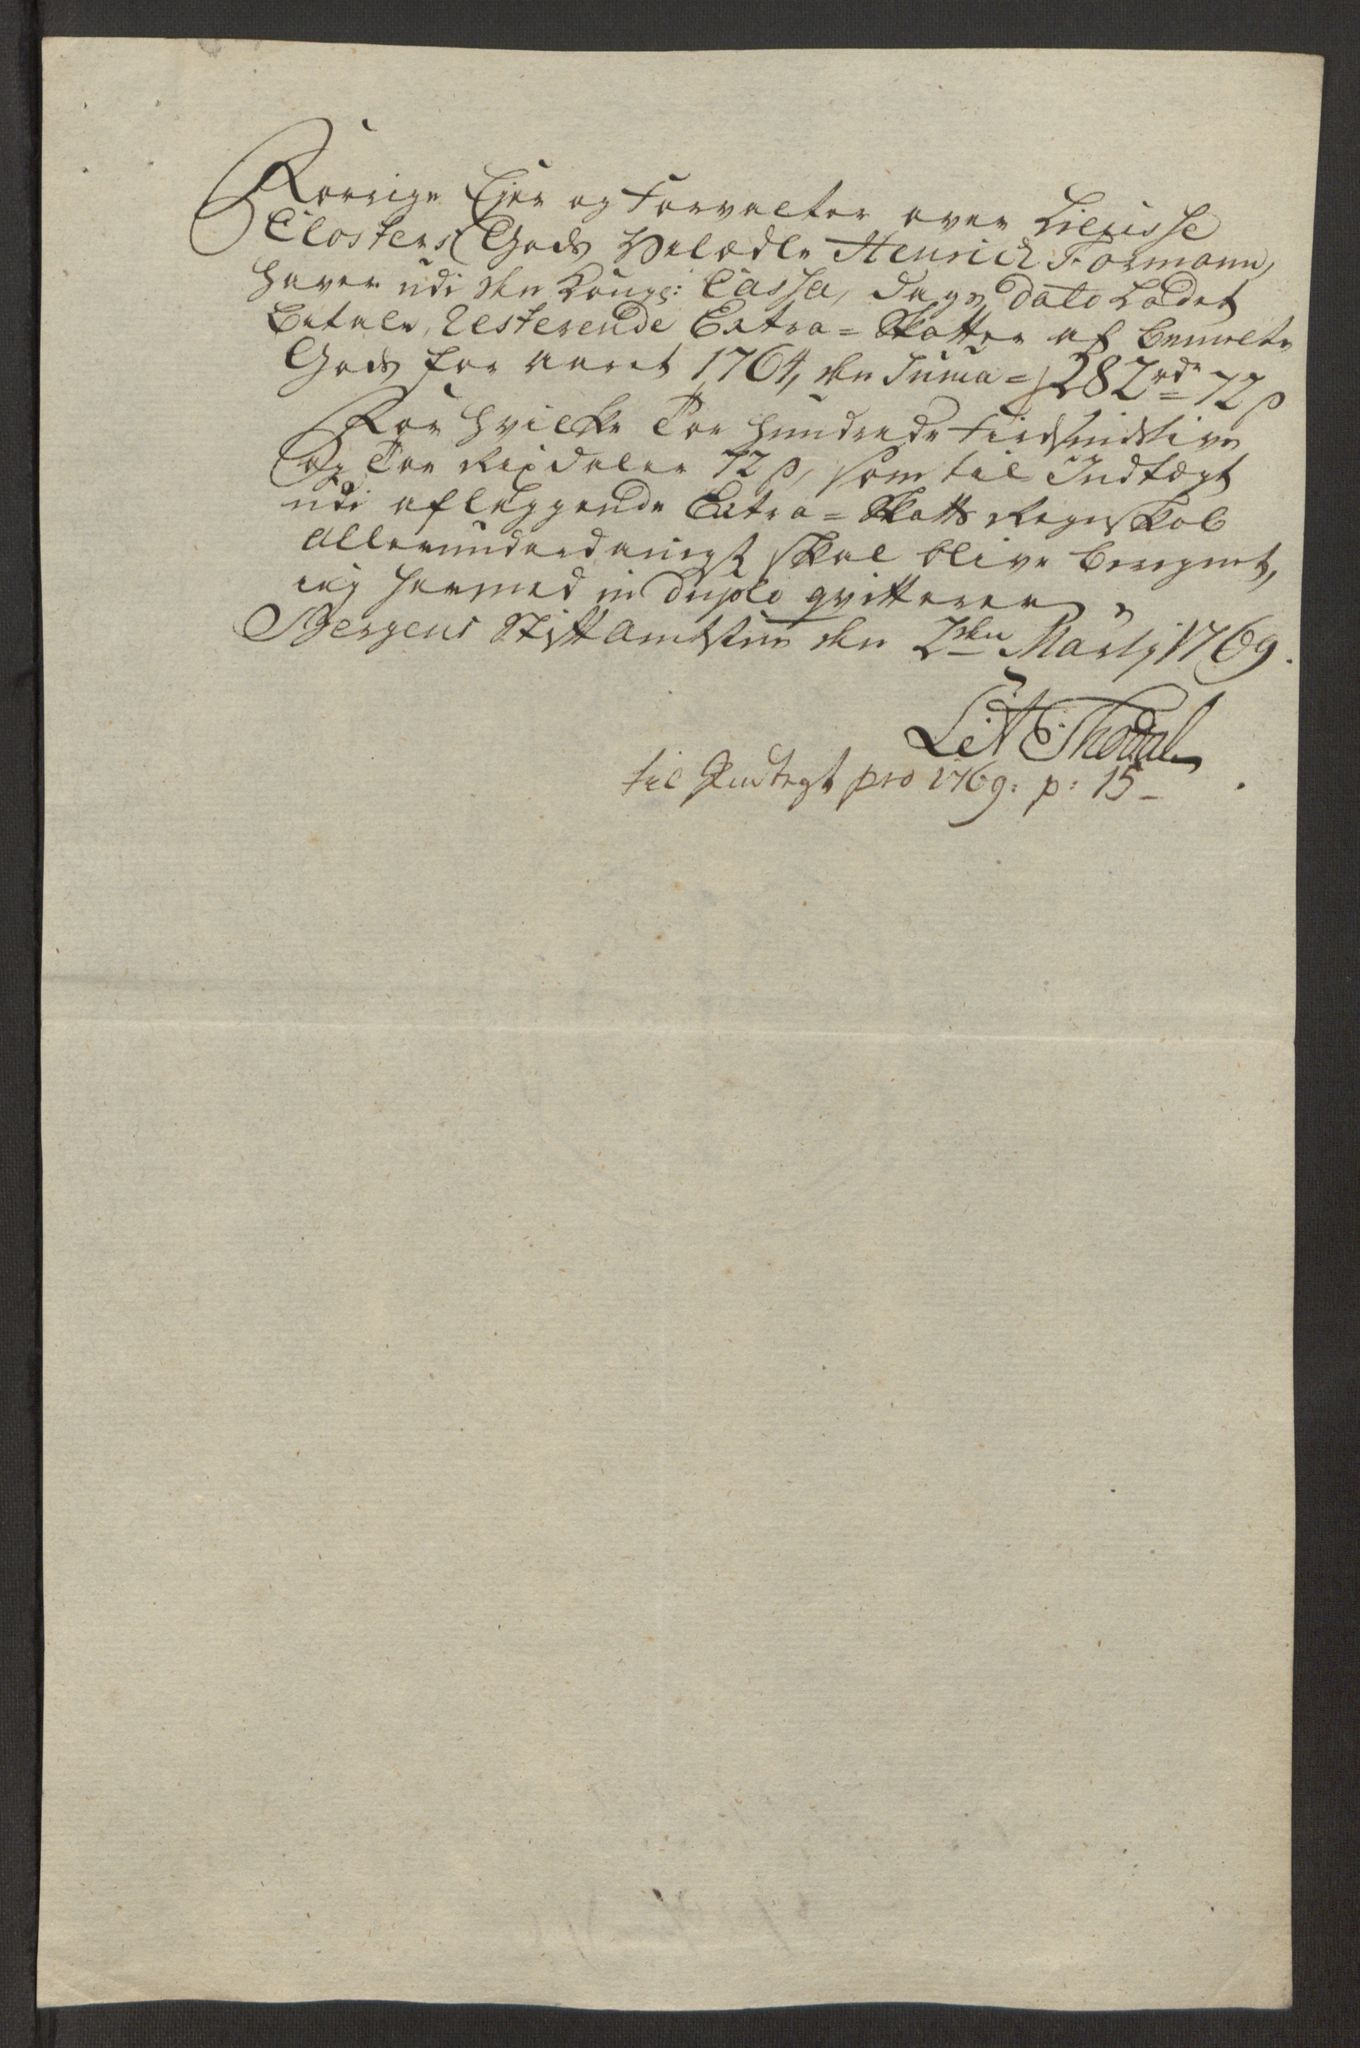 Forrige Ejer og Forvalter over Lieusse
Closters Gods Velædle Henrich Formann,
haver udi den Kongs: Cassa, Dags Dato Ladet
betale, Resterende Extra=Skatter af bemelte
Gods for aaret 1764, den Suma = 282 rdr 72 s
For hvilke Toe hundrede Firdsindstive
Og Toe Rixdaler 72 s, som til Indtægt
udi aflæggende Extra=Skatts Regnskab
allerunderdanigst skal blive beregnet,
ieg hermed in duplo qvitterer,
Bergens Stiftamtstue den 2den Martij 1769.
Thodal
til Indtegt pro 1769: p: 15 –